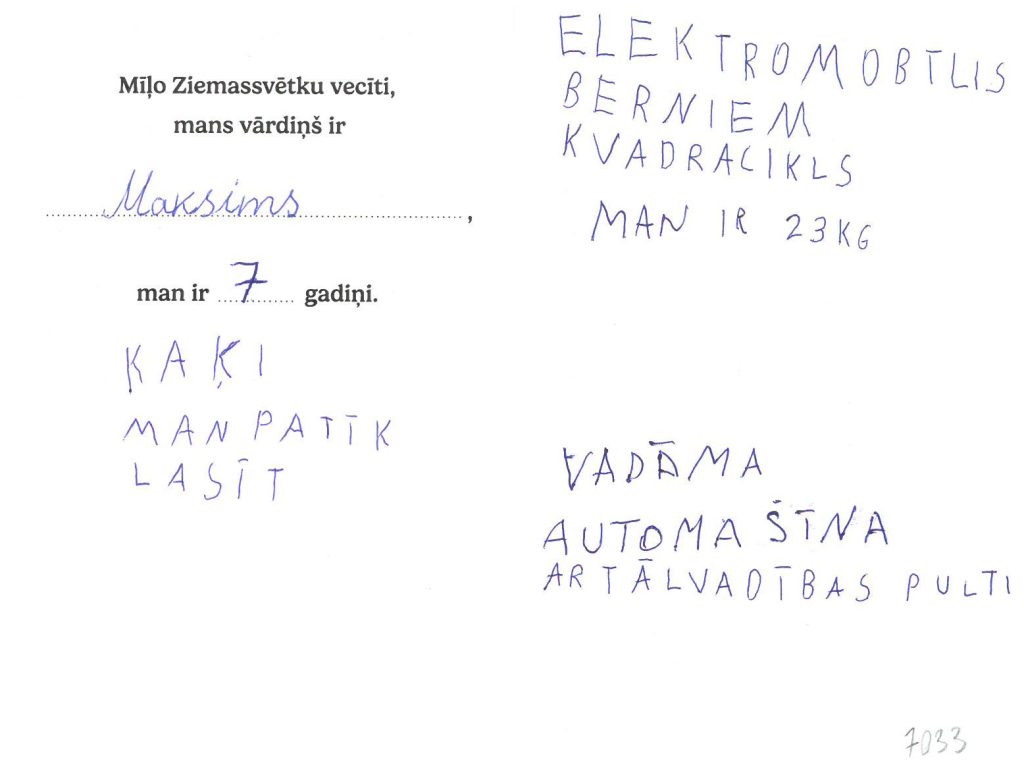 Mīļo Ziemassvētku vecīti,
mans vārdiņš ir
Maksims,
man ir 7 gadiņi.
ĶAĶI
MAN PATĪK
LASĪT
ELEKTROMOBĪLIS
BERNIEM
KVADRACIKLS
MAN IR 23KG
VADĀMA
AUTOMAŠĪNA
AR TĀLVADĪBAS PULTI
7033